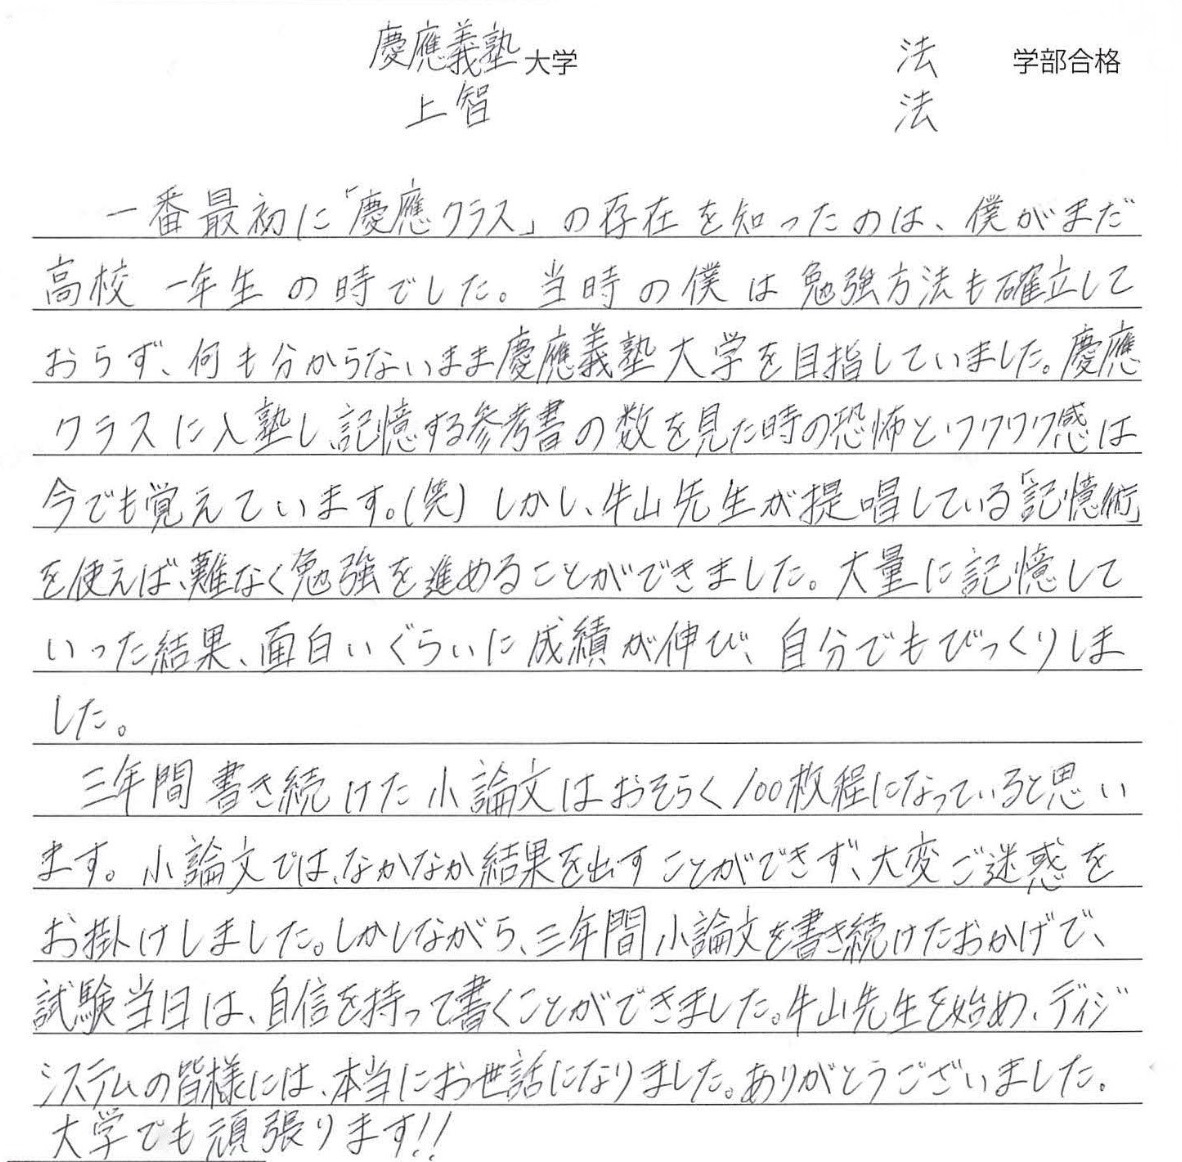 慶應義塾大学 法 学部合格
上智 法
一番最初に「慶應クラス」の存在を知ったのは、僕がまだ
高校一年生の時でした。当時の僕は勉強方法も確立して
おらず、何も分からないまま慶應義塾大学を目指していました。慶應
クラスに入塾し、記憶する参考書の数を見た時の恐怖とワクワク感は
今でも覚えています。(笑)しかし、牛山先生が提唱している「記憶術」
を使えば、難なく勉強を進めることができました。大量に記憶して
いった結果、面白いぐらいに成績が伸び、自分でもびっくりしま
した。
三年間書き続けた小論文はおそらく100枚程になっていると思い
ます。小論文では、なかなか結果を出すことができず、大変ご迷惑を
お掛けしました。しかしながら、三年間小論文を書き続けたおかげで、
試験当日は、自信を持って書くことができました。牛山先生を始め、ディジ
システムの皆様には、本当にお世話になりました。ありがとうございました。
大学でも頑張ります!!